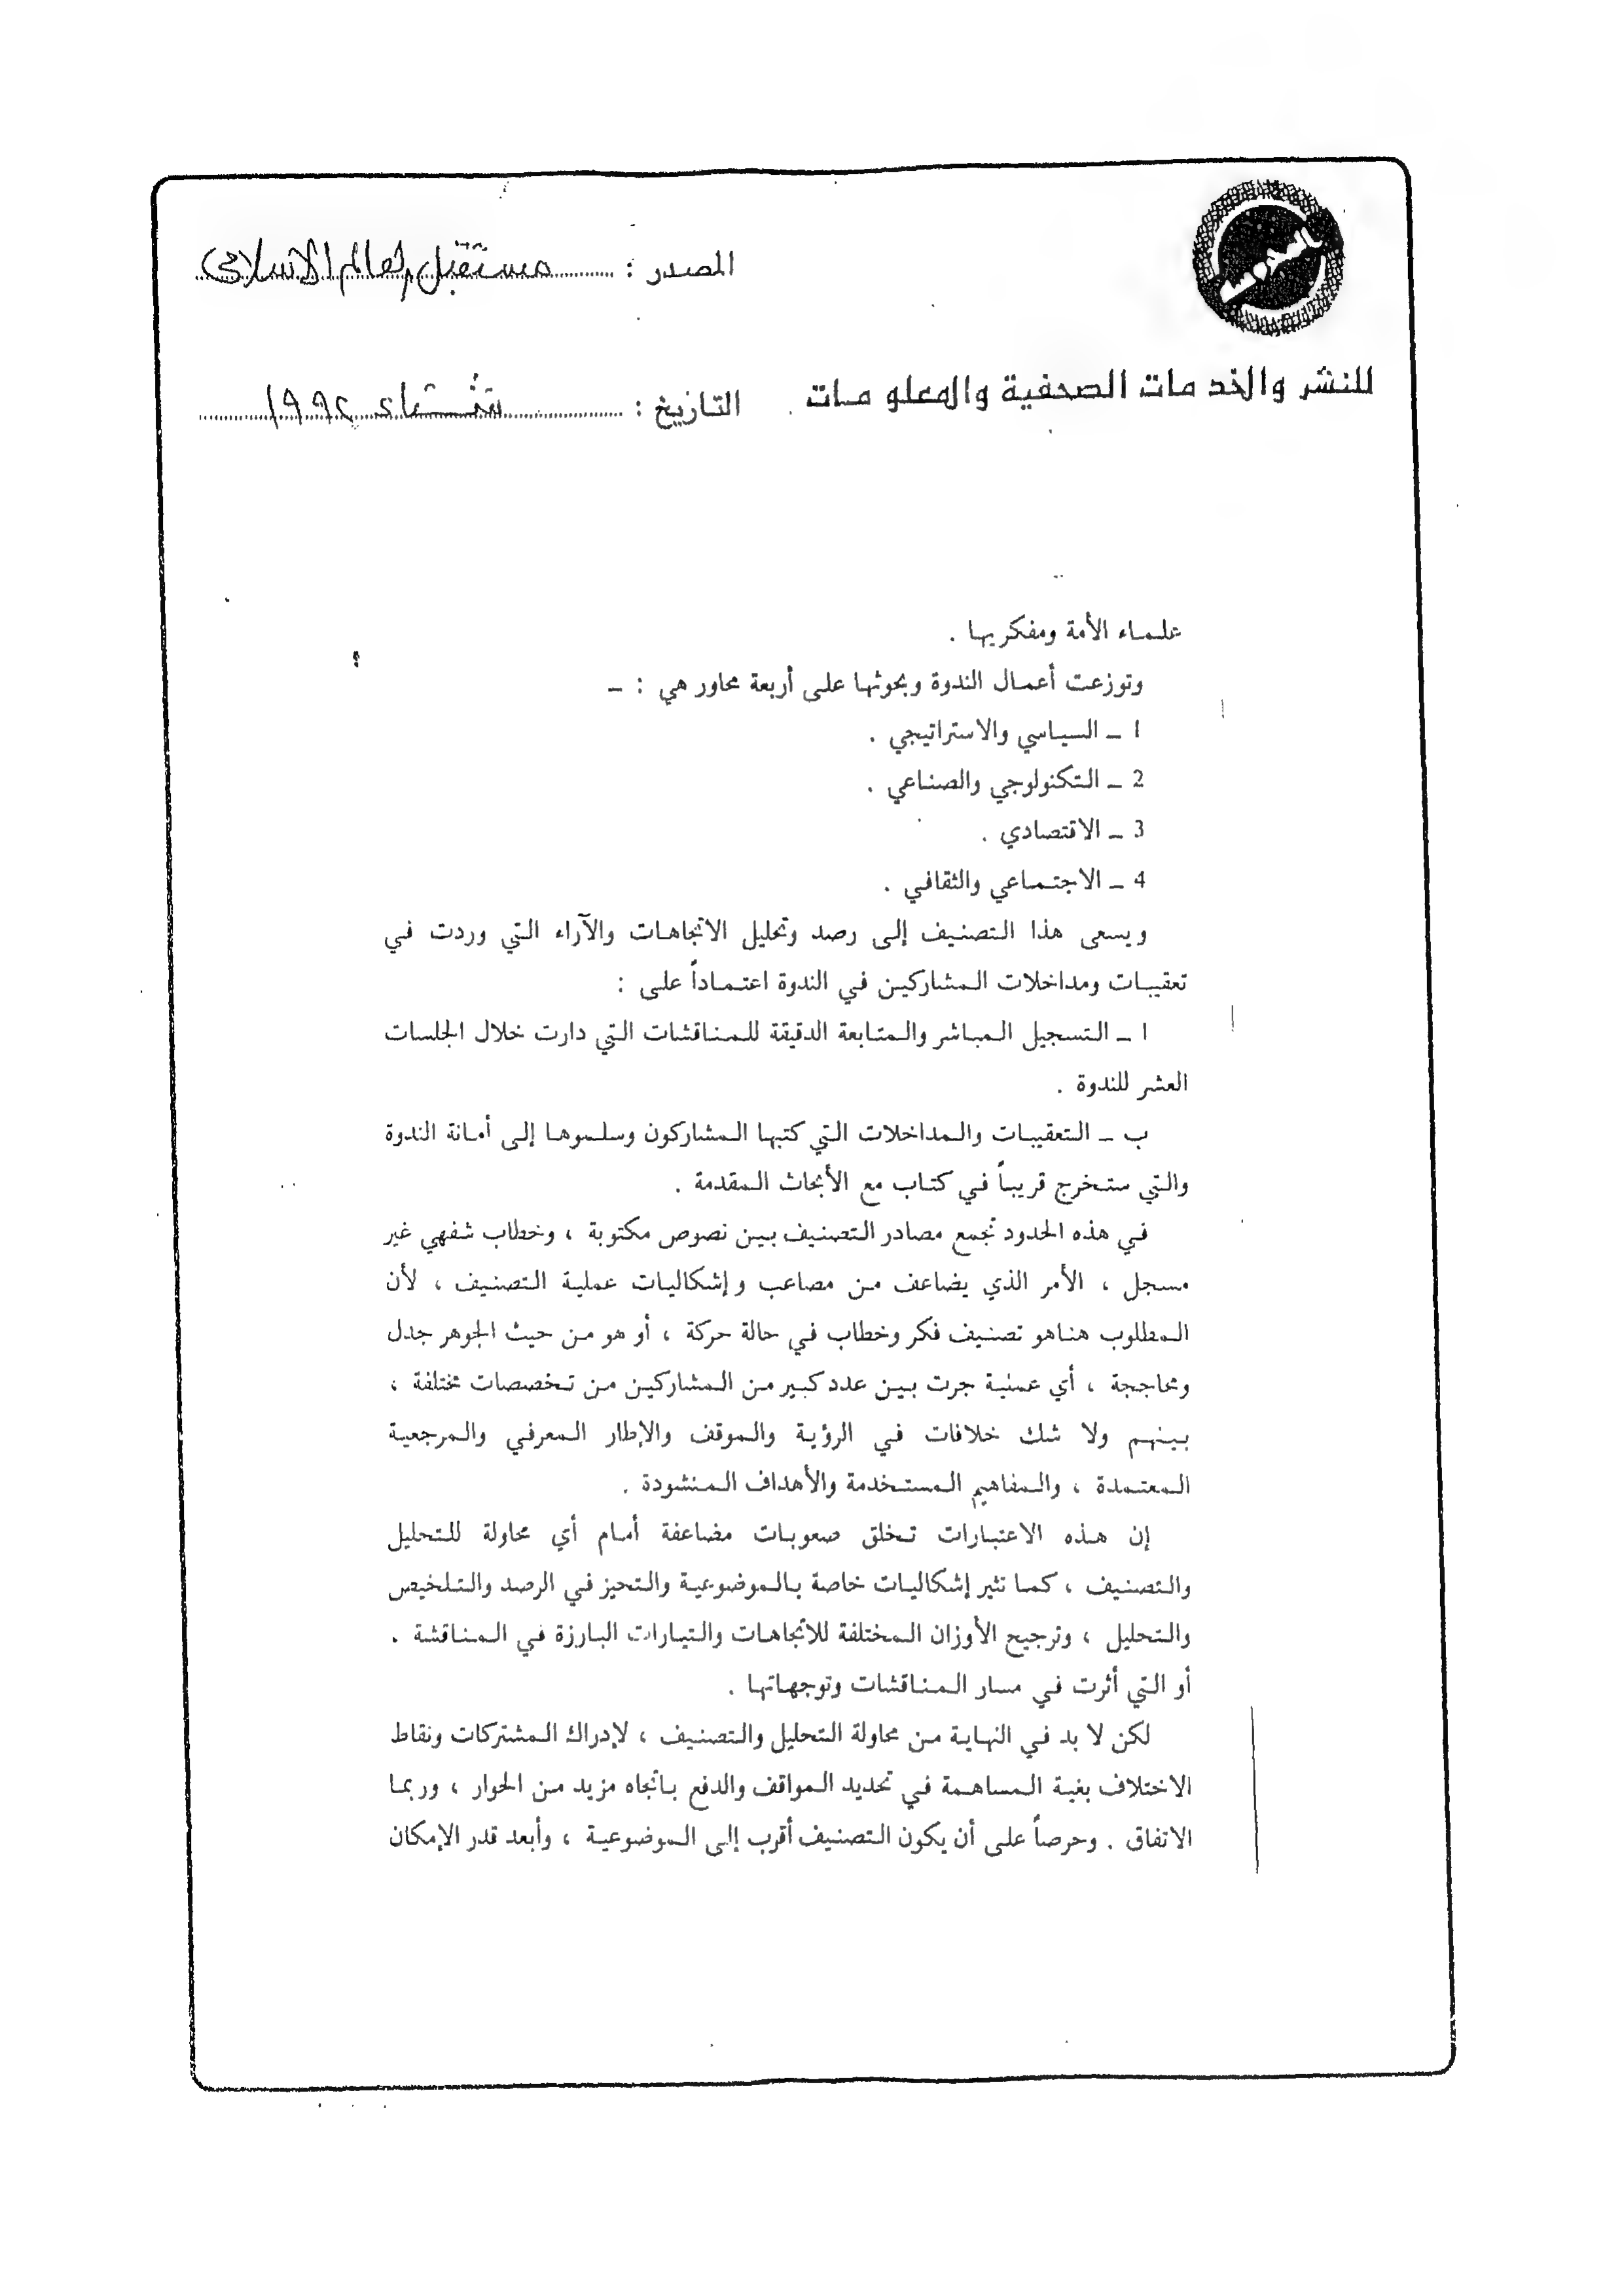 المصدر : مستقبل العالم الاسلامى
للنشر والخدمات الصحفية والمعلومات
التاريخ : شتاء ١٩٩٢
علماء الأمة ومفكريها .
وتوزعت أعمال الندوة وبحوثها على أربعة محاور هي : ـ
1 ـ السياسي والاستراتيجي .
2 ـ التكنولوجي والصناعي .
3 ـ الاقتصادي .
4 ـ الاجتماعي والثقافي .
ويسعى هذا التصنيف إلى رصد وتحليل الاتجاهات والآراء التي وردت في
تعقيبات ومداخلات المشاركين في الندوة اعتماداً على :
ا ـ التسجيل المباشر والمتابعة الدقيقة للمناقشات التي دارت خلال الجلسات
العشر للندوة .
ب ـ التعقيبات والمداخلات التي كتبها المشاركون وسلموها إلى أمانة الندوة
والتي ستخرج قريباً في كتاب مع الأبحاث المقدمة .
في هذه الحدود تجمع مصادر التصنيف بين نصوص مكتوبة ، وخطاب شفهي غير
مسجل ، الأمر الذي يضاعف من مصاعب وإشكاليات عملية التصنيف ، لأن
المطلوب هناهو تصنيف فكر وخطاب في حالة حركة ، أو هو من حيث الجوهر جدل
ومحاججة ، أي عملية جرت بين عدد كبير من المشاركين من تخصصات مختلفة ،
بينهم ولا شك خلافات في الرؤية والموقف والإطار المعرفي والمرجعية
المعتمدة ، والمفاهيم المستخدمة والأهداف المنشودة .
إن هذه الاعتبارات تخلق صعوبات مضاعفة أمام أي محاولة للتحليل
والتصنيف ، كما تثير إشكاليات خاصة بالموضوعية والتحيز في الرصد والتلخيص
والتحليل ، وترجيح الأوزان المختلفة للاتجاهات والتيارات البارزة في المناقشة .
أو التي أثرت في مسار المناقشات وتوجهاتها .
لكن لا بد في النهاية من محاولة التحليل والتصنيف ، لإدراك المشتركات ونقاط
الاختلاف بغية المساهمة في تحديد المواقف والدفع باتجاه مزيد من الحوار ، وربما
الاتفاق . وحرصاً على أن يكون التصنيف أقرب إلى الموضوعية ، وأبعد قدر الإمكان